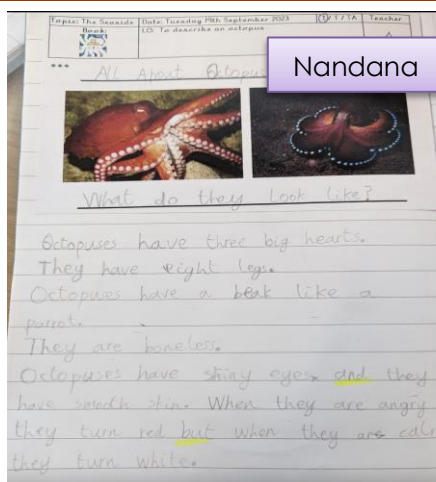 Topic: The Seaside Date: Tuesday 19th September 2023 I / T / TA Teacher
Book: LO: To describe an octopus
Nandana
*** All About Octopus
What do they look like?
Octopuses have three big hearts.
They have eight legs.
Octopuses have a beak like a
parrot.
They are boneless.
Octopuses have shiny eyes and they
have smooth skin. When they are angry
they turn red but when they are cal
they turn white.